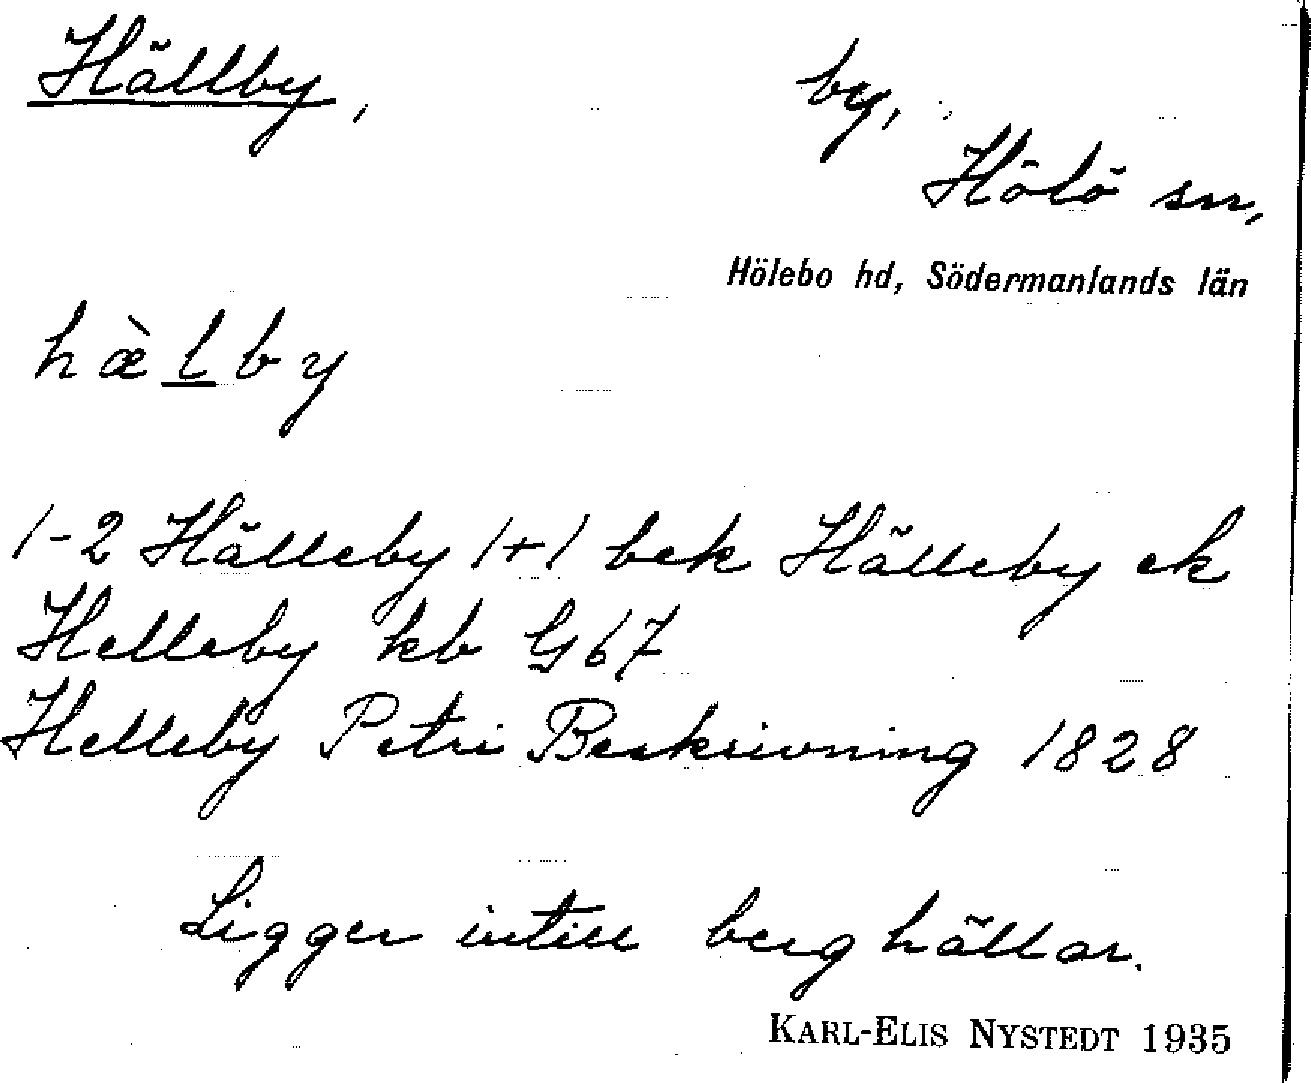 Hällby,
by,
Hölö sn,
Hölebo hd, Södermanlands län
hæ̀lby
1-2 Hälleby 1+1 bek Hälleby ek
Helleby kb G67
Helleby Petri Beskrivning 1828
Ligger intill berghällar.
KARL-ELIS NYSTEDT 1935